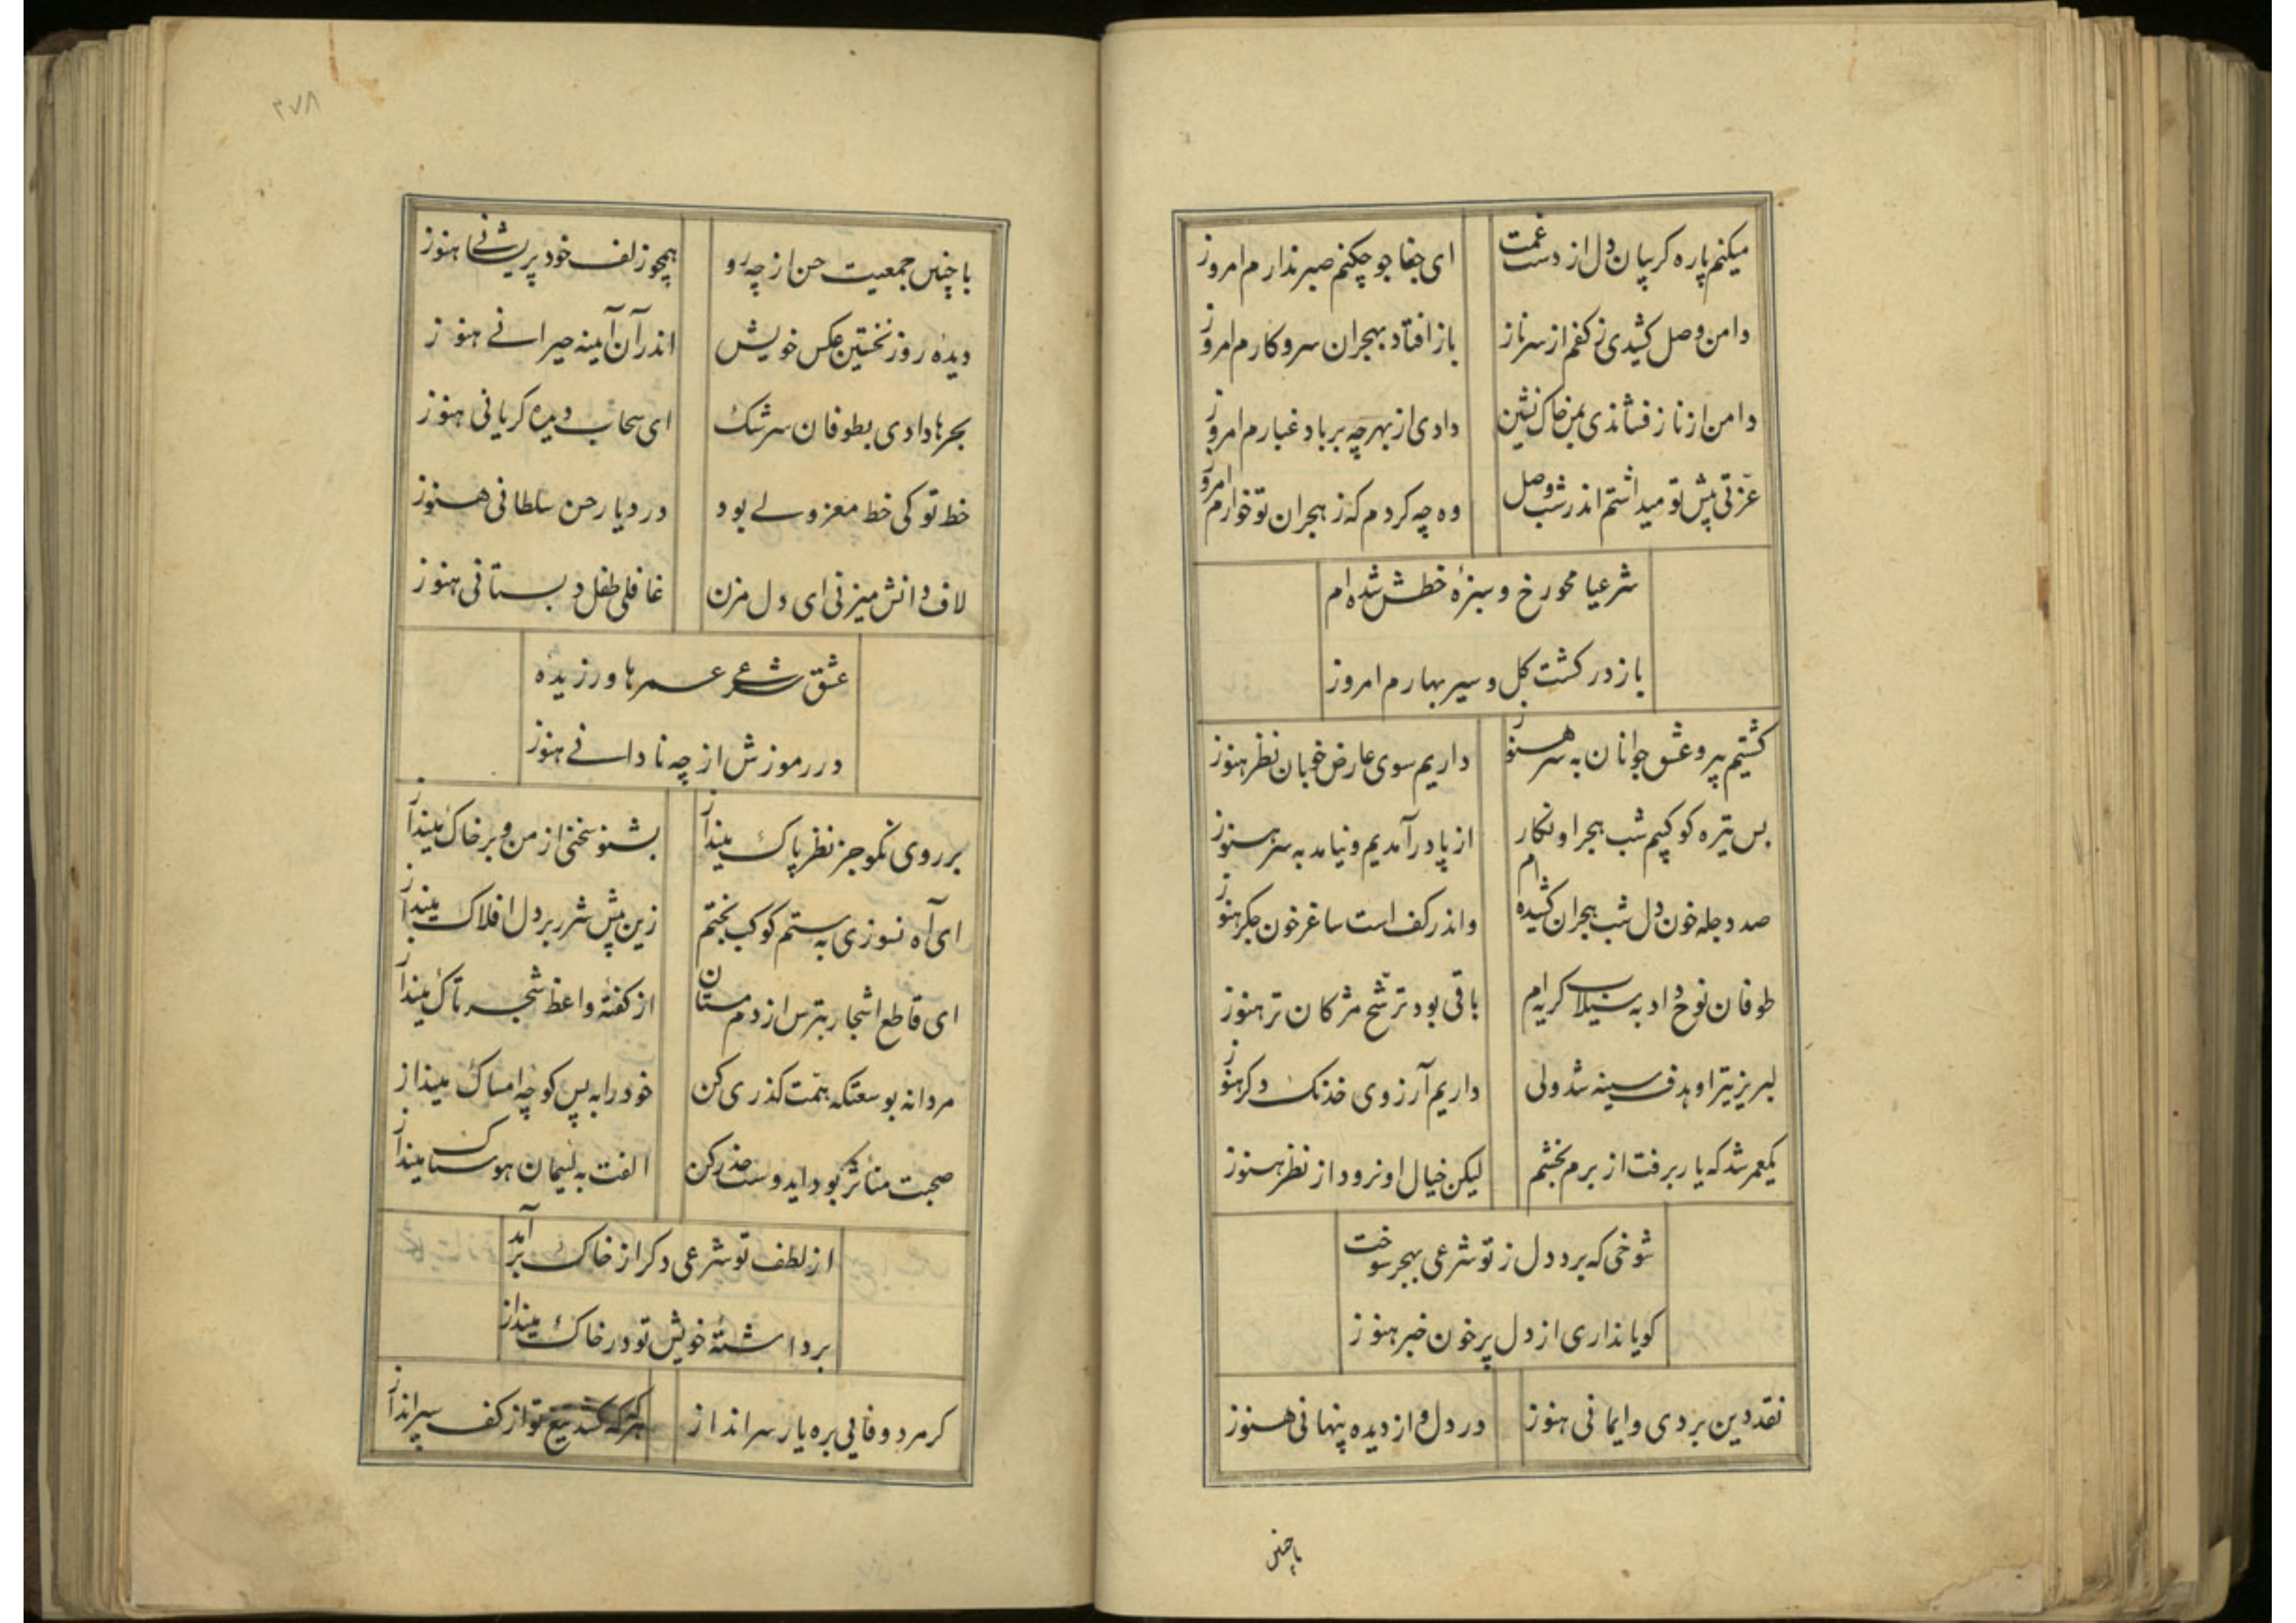 میکنم پاره کریبان دل از دست غمت
ای جفا جو چکنم صبر ندارم امروز
دامن وصل کشیدی ز کفم از سر ناز
باز افتاد بهجران سر و کارم امروز
دامن از ناز فشاندی بمن خاک نشین
دادی از بهر چه بر باد غبارم امروز
عزّتی پیش تو میداشتم اندر شب وصل
وه چه کردم که ز هجران تو خوارم امروز
شرعیا محو رخ و سبزهٔ خطش شده ام
باز در کشت کل و سیر بهارم امروز
کشتیم پیر و عشق جوانان به سر هنوز
داریم سوی عارض خوبان نظر هنوز
بس تیره کوکبیم شب هجر او نکار
از پا در آمدیم و نیامد به سر هنوز
صد دجله خون دل شب هجران کشیده ام
واندر کف است ساغر خون جکر هنوز
طوفان نوح داد به سیلاب کریه ام
باقی بود ترشّح مژکان تر هنوز
لبریز تیر او هدف سینه شد ولی
داریم آرزوی خدنک دکر هنوز
یکعمر شد که یار برفت از برم بخشم
لیکن خیال او نرود از نظر هنوز
شوخی که برد دل ز تو شرعی بهجر سوخت
کویا نداری از دل پر خون خبر هنوز
نقد دین بردی و ایمانی هنوز
در دل و از دیده پنهانی هنوز
باچنین
۳۷۸
با چنین جمعیت حسن از چه رو
همچو زلف خود پریشانی هنوز
دیدهٔ روز نخستین عکس خویش
اندر آن آیینه حیرانی هنوز
بحرها دادی بطوفان سرشک
ای سحاب دیده کریانی هنوز
خط تو کی خط معزولی بود
در دیار حسن سلطانی هنوز
لاف دانش میزنی ای دل مزن
غافلی طفل دبستانی هنوز
عشق شرعی عمرها ورزیدهٔ
در رموزش از چه نادانی هنوز
بر روی نکو جز نظر پاک مینداز
بشنو سخنی از من و بر خاک مینداز
ای آه نسوزی به ستم کوکب بختم
زین پیش شرر بر دل افلاک مینداز
ای قاطع اشجار بترس از دم مستان
از کفتهٔ واعظ شجر تاک مینداز
مردانه بوسعتکه همّت کذری کن
خود را به پس کوچه امساک مینداز
صحبت متاثر بود ایدوست حذر کن
الفت به لئیمان هوسناک مینداز
از لطف تو شرعی دکر از خاک برآمد
برداشتهٔ خویش تو در خاک مینداز
کر مرد وفایی بره یار سر انداز
هرکه کشد تیغ تو از کف سپر انداز